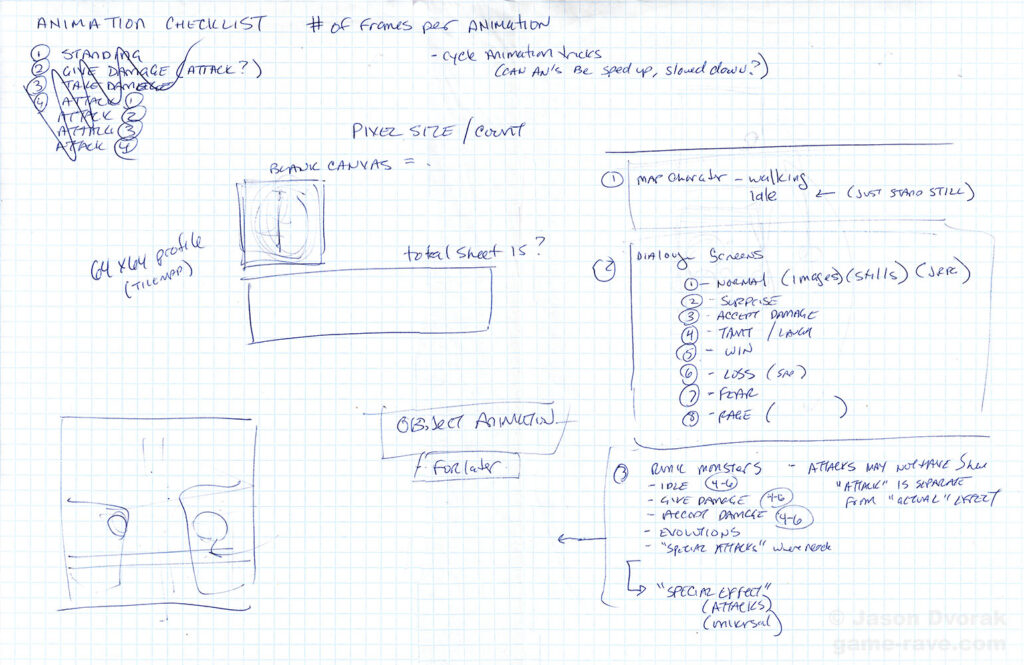 ANIMATION CHECKLIST
① STANDING
② GIVE DAMAGE (ATTACK?)
③ TAKE DAMAGE
④ ATTACK ①
ATTACK ②
ATTACK ③
ATTACK ④
# of frames per ANIMATION
- cycle Animation tricks
(CAN AN'S Be sped up, slowed down?)
PIXEL SIZE / count
BLANK CANVAS = .
64x64 profile
(TILEMAP)
total sheet is?
OBJECT ANIMATION
For later
① MAP Charater - walking
Idle ← (JUST STAND STILL)
② DIALOG Screens
① - NORMAL (images) (stills)
② - SURPRISE
③ - ACCEPT DAMAGE
④ - TANT / LAUGH
⑤ - WIN
⑥ - LOSS (SAD)
⑦ - FEAR
⑧ - RAGE ( )
③ RUNIC MONSTERS - ATTACKS MAY NOT HAVE
- IDLE (4-6)
"ATTACK" IS SEPARATE
FROM "ACTUAL" EFFECT
- GIVE DAMAGE (4-6)
- ACCEPT DAMAGE (4-6)
- EVOLUTIONS
- "SPECIAL ATTACKS" where needed
"SPECIAL EFFECT"
(ATTACKS)
(universal)
© Jason Dvorak
game-rave.com